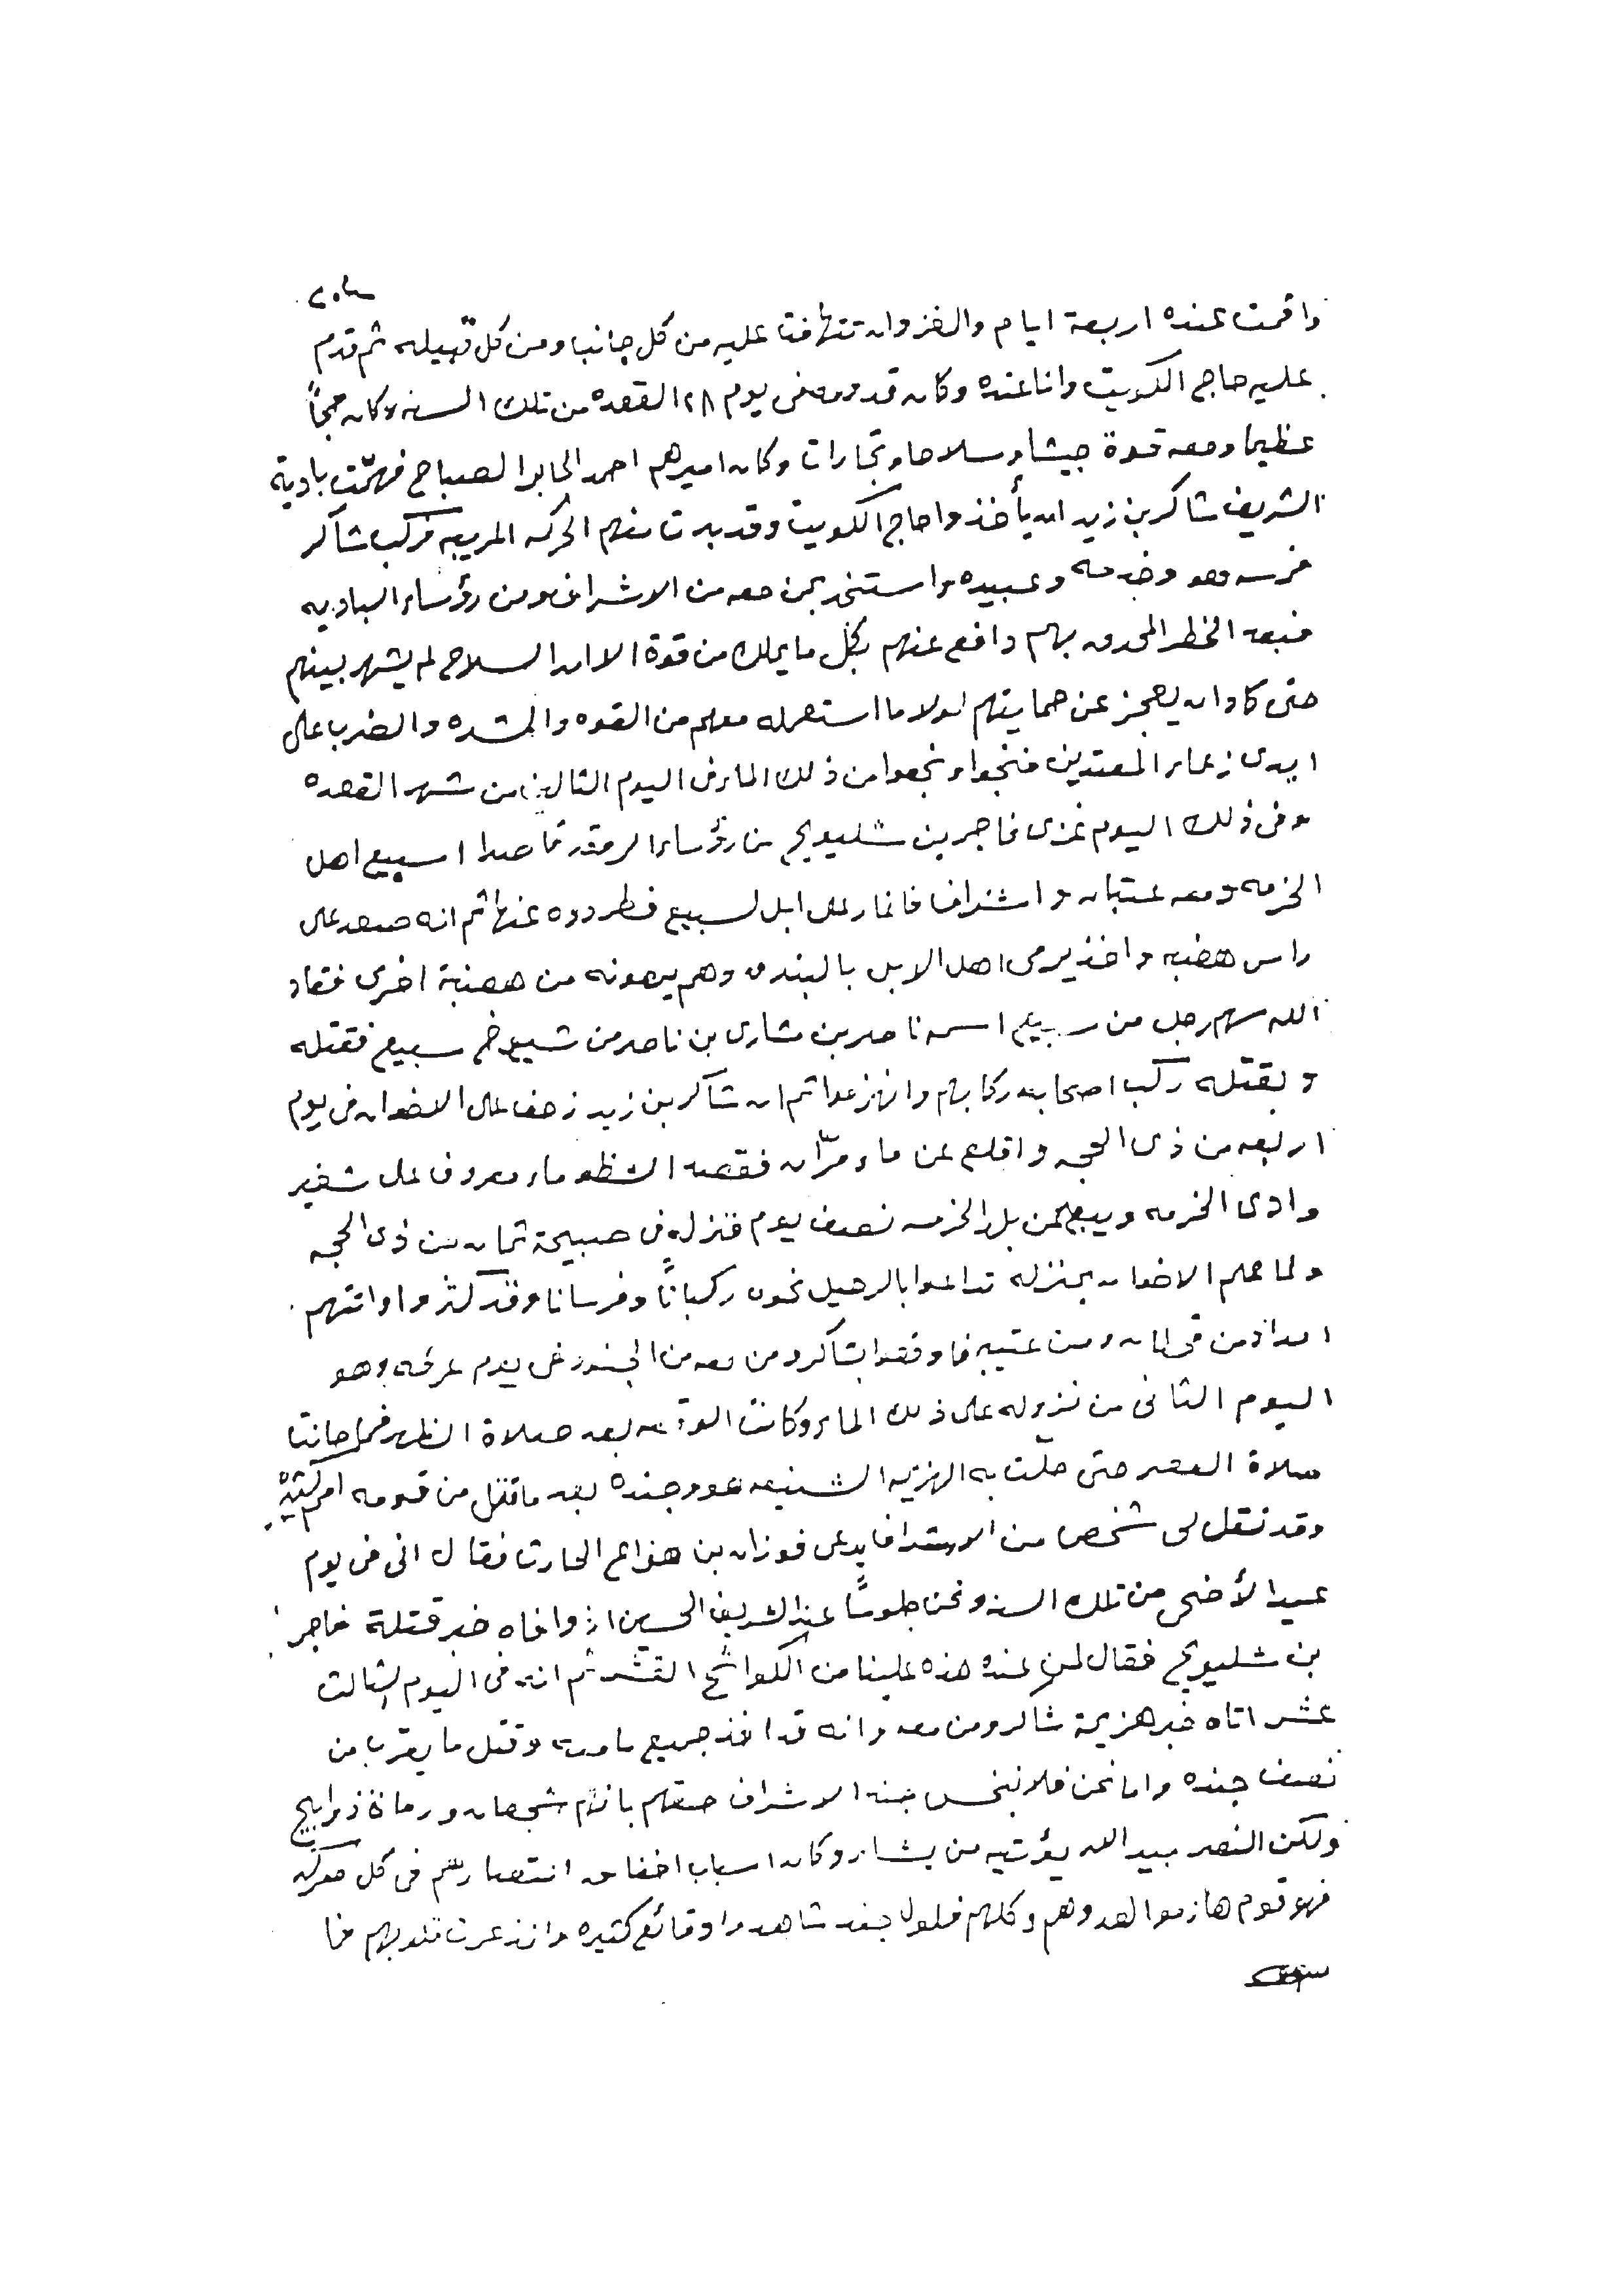 ٢٠٣
واقمت عنده اربعة ايام والغزوان تتهافت عليه من كل جانب ومن كل قبيله ثم قدم
عليه حاج الكويت وانا عنده وكان قدومه في يوم ٢٨ القعده من تلك السنه وكان حجاً
عظيما ومعه قوة جيشا وسلاحا وتجارات وكان اميرهم احمد الجابر الصباح فهمّت بادية
الشريف شاكر بن زيد ان يأخذوا حاج الكويت وقد بدت منهم الحركه المريبه فركب شاكر
فرسه وهو وخدمه وعبيده واستنجد بمن معه من الاشراف ومن رؤساء الباديه
فبعد الخطر المحدق بهم دافع عنهم بكل ما يملك من قوة الا ان السلاح لم يشهر بينهم
حتى كاد ان يعجز عن حمايتهم لولا ما استعمله معهم من القوه والشده والضرب على
ايدى زعماء المعتدين فنجوا ونجعوا من ذلك الماء في اليوم الثالث من شهر القعده
وفي ذلك اليوم غزى فاجر بن شليويح من رؤساء الروقه قاصدا اسبيع اهل
الخرمه ومعه عتبان واشراف فاغار على ابل لسبيع فطردوه عنها ثم انه صعد على
راس هضبه واخذ يرمى اهل الابل بالبندق وهم يرمونه من هضبة اخرى فقاد
الله سهم رجل من سبيع اسمه ناصر بن مشارى بن ناصر من شيوخ سبيع فقتله
وبقتله ركب اصحابه ركابهم وانهزعوا ثم ان شاكر بن زيد زحف على الاخوان في يوم
اربعه من ذى الحجه واقلع عن ماء مرّان فقصد الشظو ماء معروف على شفير
وادى الخرمه ويبعد عن بلد الخرمه نصف يوم فنزله في صبيحة ثمان من ذى الحجه
ولما علم الاخوان بمنزله تداعوا بالرحيل نحوه ركباناً وفرسانا وقد كثروا واتتهم
امداد من قحطان ومن عتيبه فاوقعوا بشاكر ومن معه من الجنود في يوم عرفه وهو
اليوم الثانى من نزوله على ذلك الماء وكانت الوقعه بعد صلاة الظهر فما حانت
صلاة العصر حتى حلّت به الهزيمه الشنيعه هو وجنده بعد ما قتل من قومه امم كثيره
وقد نقل لى شخص من الاشراف يدعى فوزان بن هزاع الحارث فقال انى في يوم
عيد الأضحى من تلك السنه ونحن جلوساً عند الشريف الحسين اذ وافاه خبر قتلة فاجر
بن شليويح فقال لمن عنده هذه علينا من الكواشح القشر ثم انه في اليوم الثالث
عشر اتاه خبر هزيمة شاكر ومن معه وانه قد اخذ جميع ما معه وقتل ما يقرب من
نصف جنده واما نحن فلا نبخس جند الاشراف حقهم بانهم شجعان ورماة ذوابيح
ولكن النصر بيد الله يؤتيه من يشاء وكان اسباب اخفاق انتصارهم في كل معركه
فهو قوم هازموا العدوهم وكلهم فلول جند شاهدوا وقائع كثيره وانذعرت قلوبهم فما